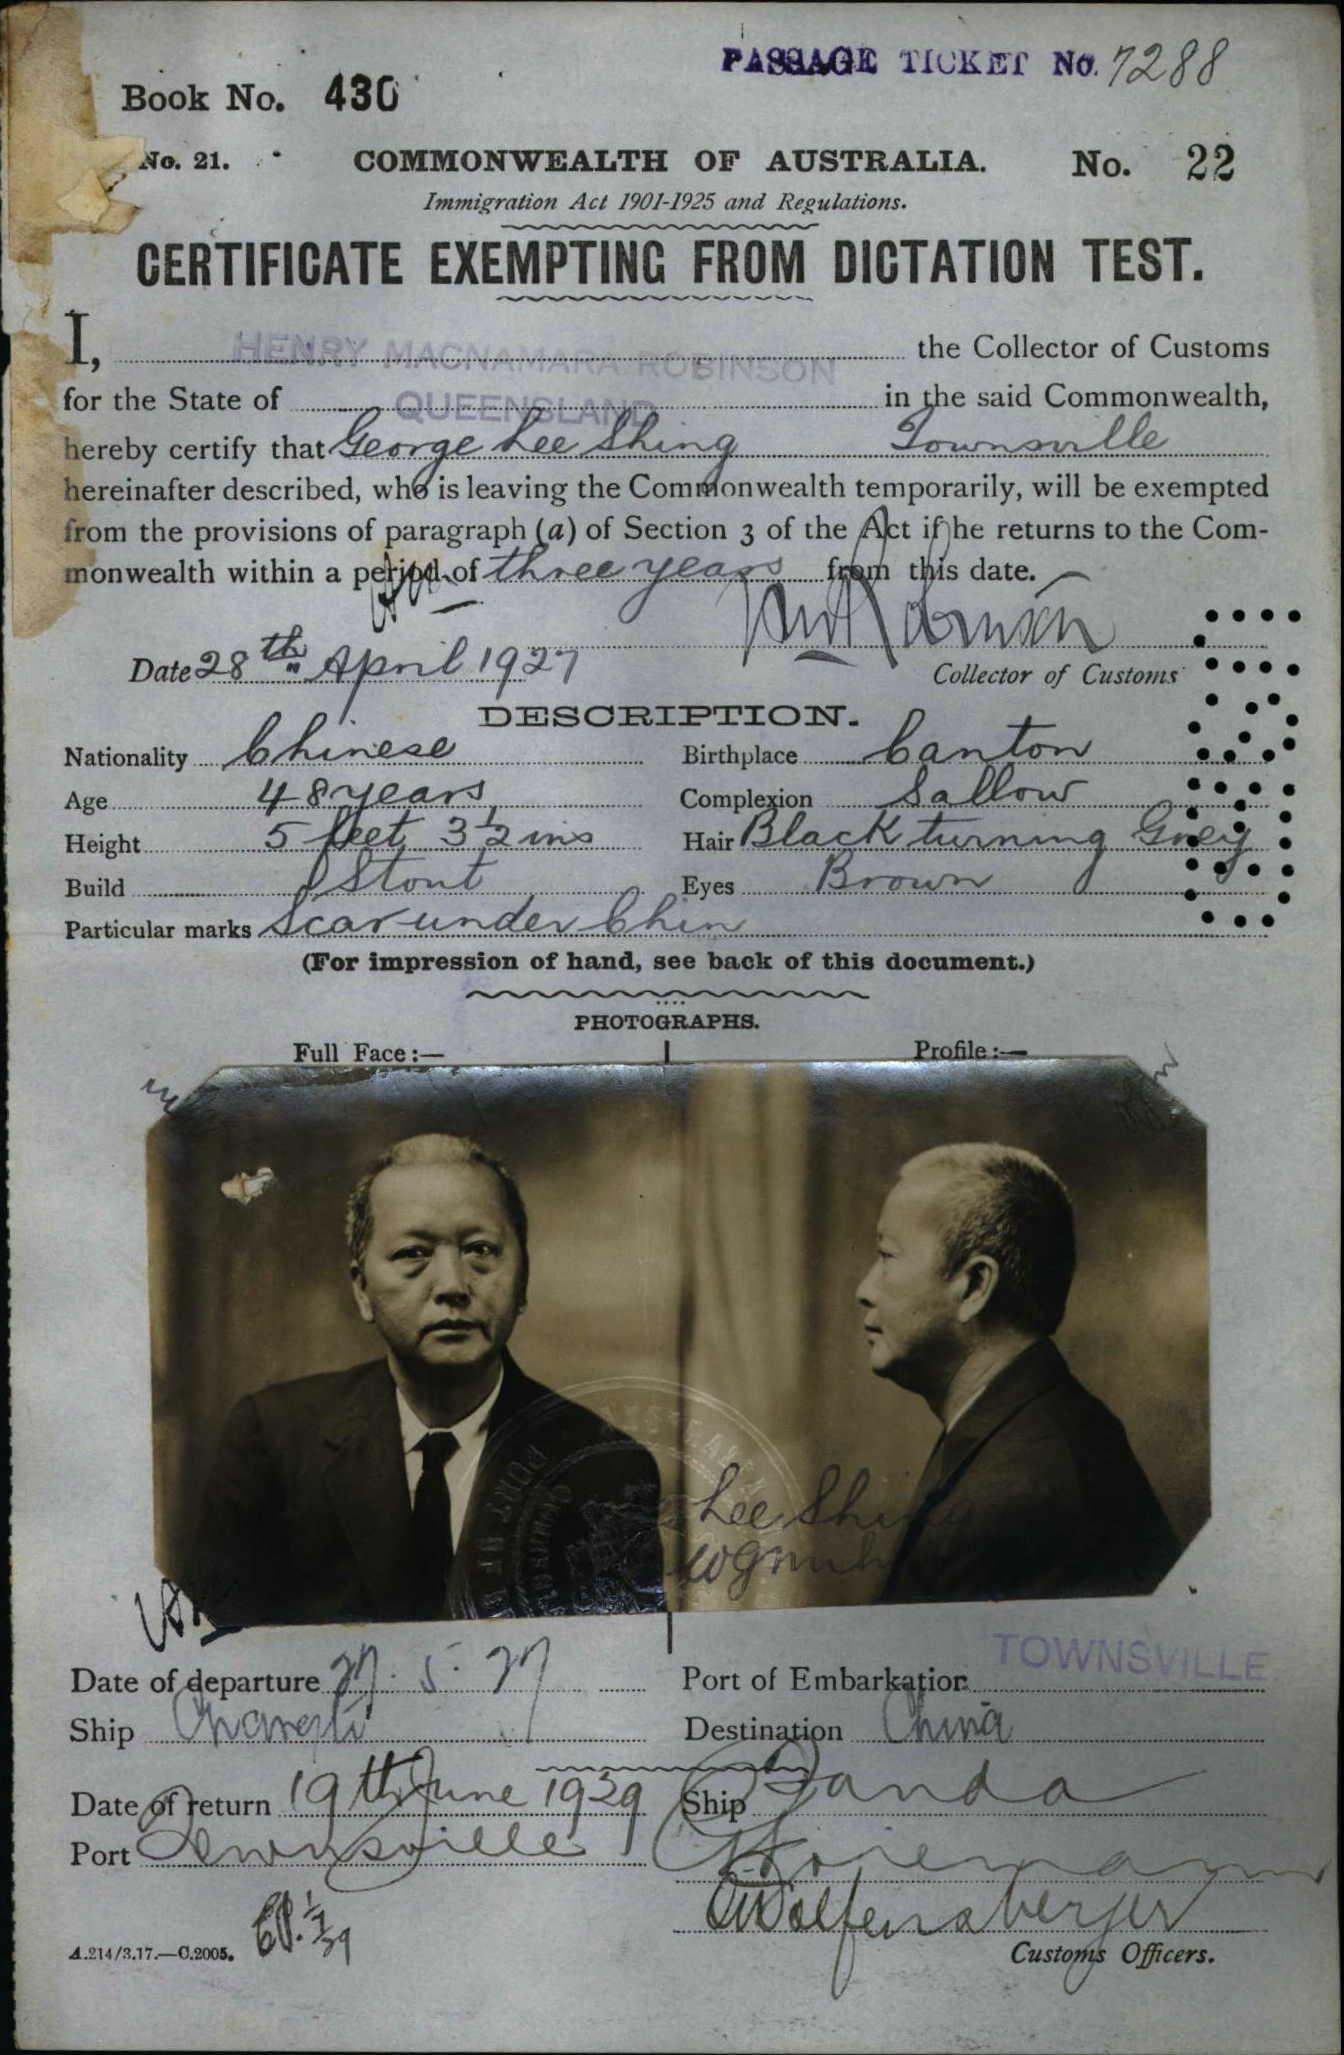 PASSAGE TICKET No. 7288
Book No. 430
No. 21. COMMONWEALTH OF AUSTRALIA. No. 22
Immigration Act 1901-1925 and Regulations.
CERTIFICATE EXEMPTING FROM DICTATION TEST.
I, HENRY MACNAMARA ROBINSON the Collector of Customs
for the State of QUEENSLAND in the said Commonwealth,
hereby certify that George Lee Shing Townsville
hereinafter described, who is leaving the Commonwealth temporarily, will be exempted
from the provisions of paragraph (a) of Section 3 of the Act if he returns to the Com-
monwealth within a period of three years from this date.
Robinson
Date 28th April 1927 Collector of Customs
DESCRIPTION.
Nationality Chinese Birthplace Canton
Age 48 years Complexion Sallow
Height 5 feet 3½ ins Hair Black turning Grey
Build Stout Eyes Brown
Particular marks Scar under Chin
(For impression of hand, see back of this document.)
PHOTOGRAPHS.
Full Face:— Profile:—
Lee Shing
Date of departure 27. 5. 27 Port of Embarkation TOWNSVILLE
Ship Changte Destination China
Date of return 19th June 1929 Ship Tanda
Port Townsville
Wolfensberger
A.214/3.17.—C.2005. Customs Officers.